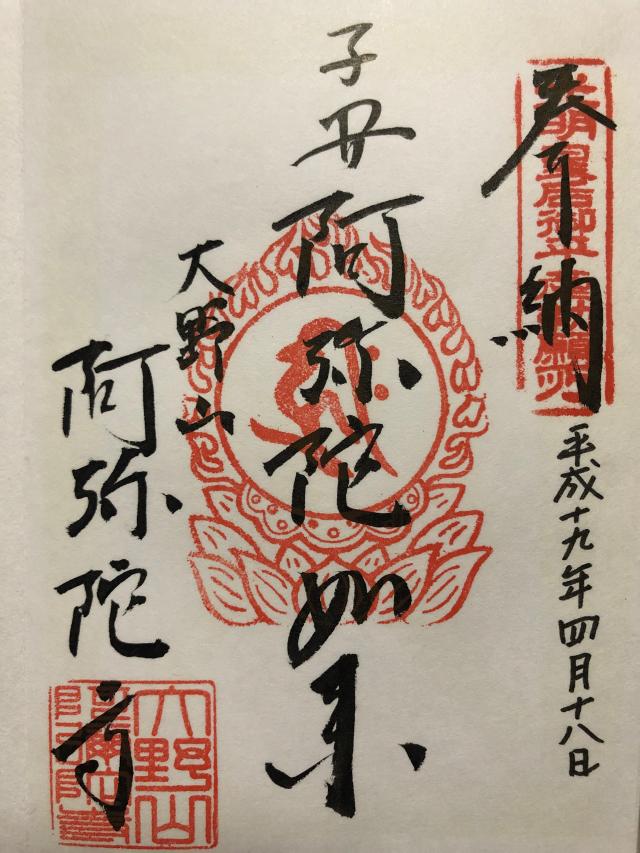 奉納
平成十九年四月十八日
子丑 阿弥陀如来
大野山
阿弥陀寺
大野山